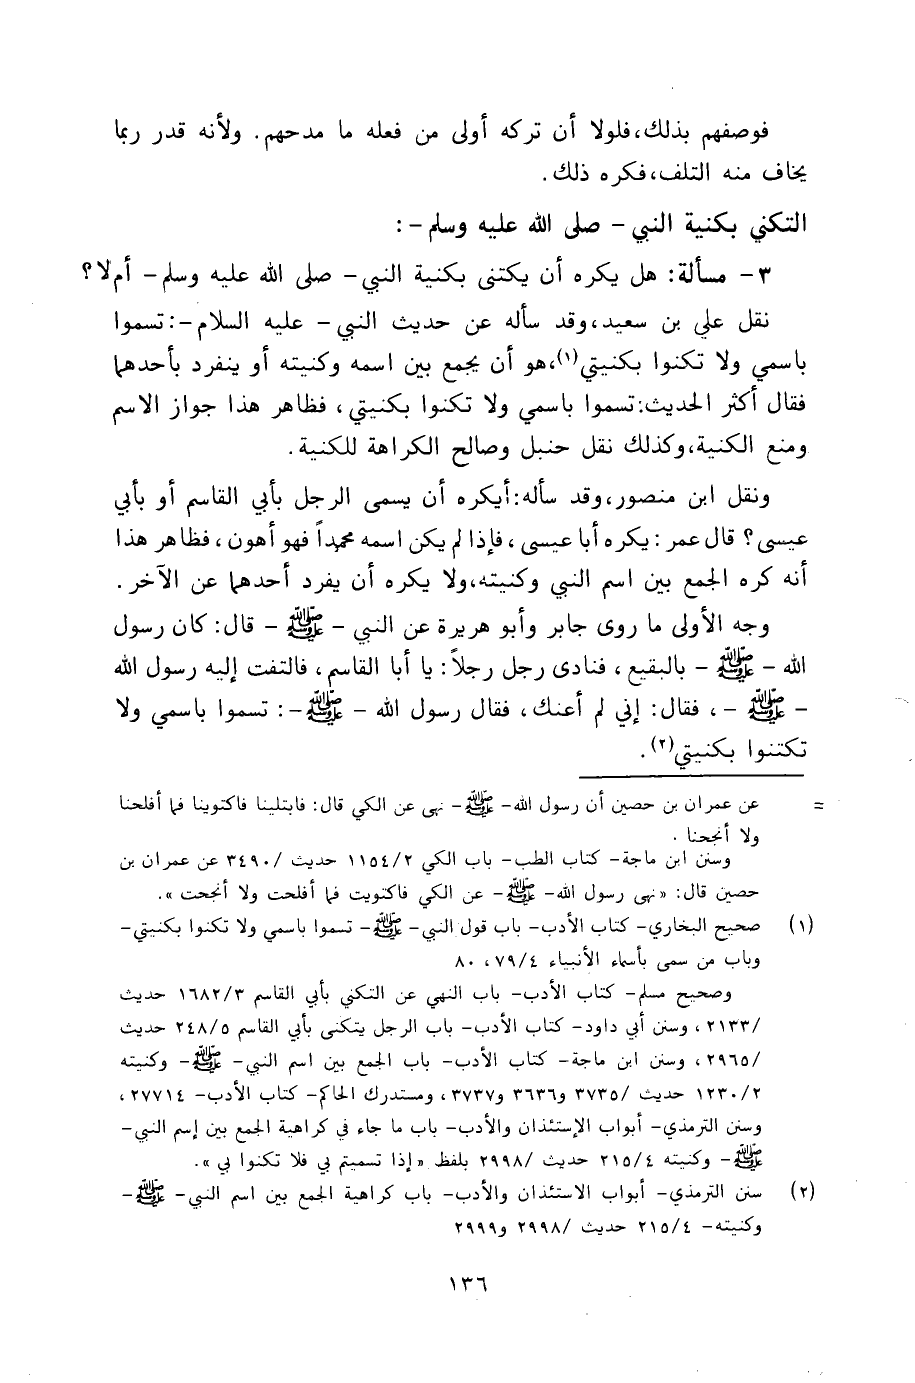 فوصفهم بذلك، فلولا أن تركه أولى من فعله ما مدحهم. ولأنه قدر ربما
يخاف منه التلف، فكره ذلك.
التكني بكنية النبي - صلى الله عليه وسلم -:
٣ - مسألة: هل يكره أن يكتنى بكنية النبي - صلى الله عليه وسلم - أم لا؟
نقل علي بن سعيد، وقد سأله عن حديث النبي - عليه السلام -: تسموا
باسمي ولا تكنوا بكنيتي(١)، هو أن يجمع بين اسمه وكنيته أو ينفرد بأحدهما
فقال أكثر الحديث: تسموا باسمي ولا تكنوا بكنيتي، فظاهر هذا جواز الاسم
ومنع الكنية، وكذلك نقل حنبل وصالح الكراهة للكنية.
ونقل ابن منصور، وقد سأله: أيكره أن يسمى الرجل بأبي القاسم أو بأبي
عيسى؟ قال عمر: يكره أبا عيسى، فإذا لم يكن اسمه محمداً فهو أهون، فظاهر هذا
أنه كره الجمع بين اسم النبي وكنيته، ولا يكره أن يفرد أحدهما عن الآخر.
وجه الأولى ما روى جابر وأبو هريرة عن النبي - ﷺ - قال: كان رسول
الله - ﷺ - بالبقيع، فنادى رجل رجلاً: يا أبا القاسم، فالتفت إليه رسول الله
- ﷺ -، فقال: إني لم أعنك، فقال رسول الله - ﷺ -: تسموا باسمي ولا
تكتنوا بكنيتي(٢).
= عن عمران بن حصين أن رسول الله - ﷺ - نهى عن الكي قال: فابتلينا فاكتوينا فما أفلحنا
ولا أنجحنا.
وسنن ابن ماجة - كتاب الطب - باب الكي ١١٥٤/٢ حديث /٣٤٩٠ عن عمران بن
حصين قال: «نهى رسول الله - ﷺ - عن الكي فاكتويت فما أفلحت ولا أنجحت».
(١) صحيح البخاري - كتاب الأدب - باب قول النبي - ﷺ - تسموا باسمي ولا تكنوا بكنيتي -
وباب من سمى بأسماء الأنبياء ٧٩/٤، ٨٠
وصحيح مسلم - كتاب الأدب - باب النهي عن التكني بأبي القاسم ١٦٨٢/٣ حديث
/٢١٣٣، وسنن أبي داود - كتاب الأدب - باب الرجل يتكنى بأبي القاسم ٢٤٨/٥ حديث
/٢٩٦٥، وسنن ابن ماجة - كتاب الأدب - باب الجمع بين اسم النبي - ﷺ - وكنيته
١٢٣٠/٢ حديث /٣٧٣٥ و٣٦٣٦ و٣٧٣٧، ومستدرك الحاكم - كتاب الأدب - ٢٧٧١٤،
وسنن الترمذي - أبواب الإستئذان والأدب - باب ما جاء في كراهية الجمع بين إسم النبي -
ﷺ - وكنيته ٢١٥/٤ حديث /٢٩٩٨ بلفظ «إذا تسميتم بي فلا تكنوا بي».
(٢) سنن الترمذي - أبواب الاستئذان والأدب - باب كراهية الجمع بين اسم النبي - ﷺ -
وكنيته - ٢١٥/٤ حديث /٢٩٩٨ و٢٩٩٩
١٣٦